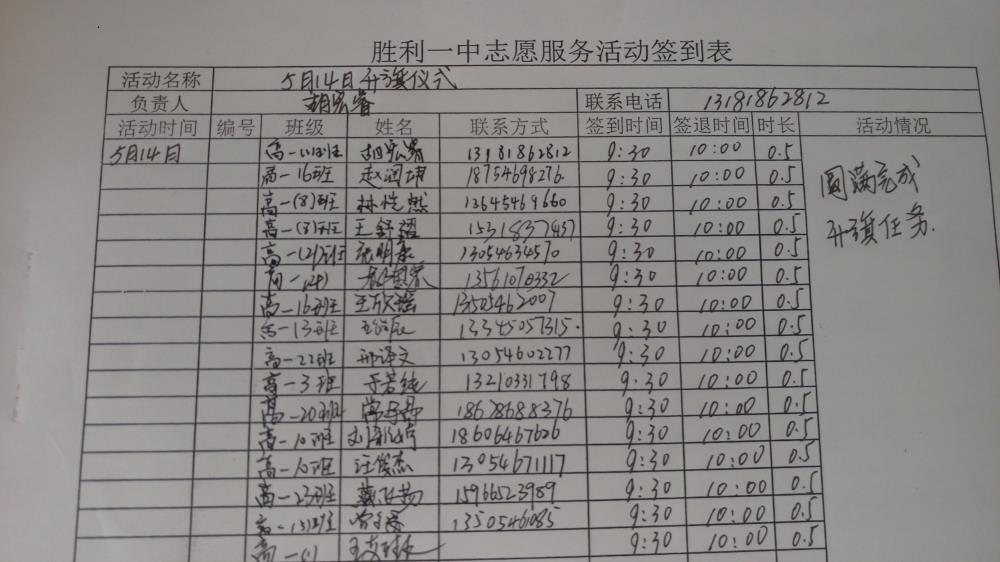 胜利一中志愿服务活动签到表
活动名称 5月14日升旗仪式
负责人 胡宏睿 联系电话 13181862812
活动时间 编号 班级 姓名 联系方式 签到时间 签退时间 时长 活动情况
5月14日 高一(13)班 胡宏睿 13181862812 9:30 10:00 0.5 圆满完成
高一16班 赵润坤 18754698276 9:30 10:00 0.5
高一(8)班 林悦然 13645469660 9:30 10:00 0.5 升旗任务.
高一(8)班 王舒 15318377437 9:30 10:00 0.5
高一(2)班 张明 13054634570 9:30 10:00 0.5
高一 13561070332 9:30 10:00 0.5
高一16班 王 13505462007 9:30 10:00 0.5
高一13班 13345057315 9:30 10:00 0.5
高一22班 邢译文 13054602277 9:30 10:00 0.5
高一3班 于若纯 13210331798 9:30 10:00 0.5
高一20班 18678688376 9:30 10:00 0.5
高一10班 刘 18606467626 9:30 10:00 0.5
高一10班 汪俊杰 13054671117 9:30 10:00 0.5
高一23班 戴 15966523989 9:30 10:00 0.5
高一(3)班 13505461085 9:30 10:00 0.5
高一(1) 王 9:30 10:00 0.5